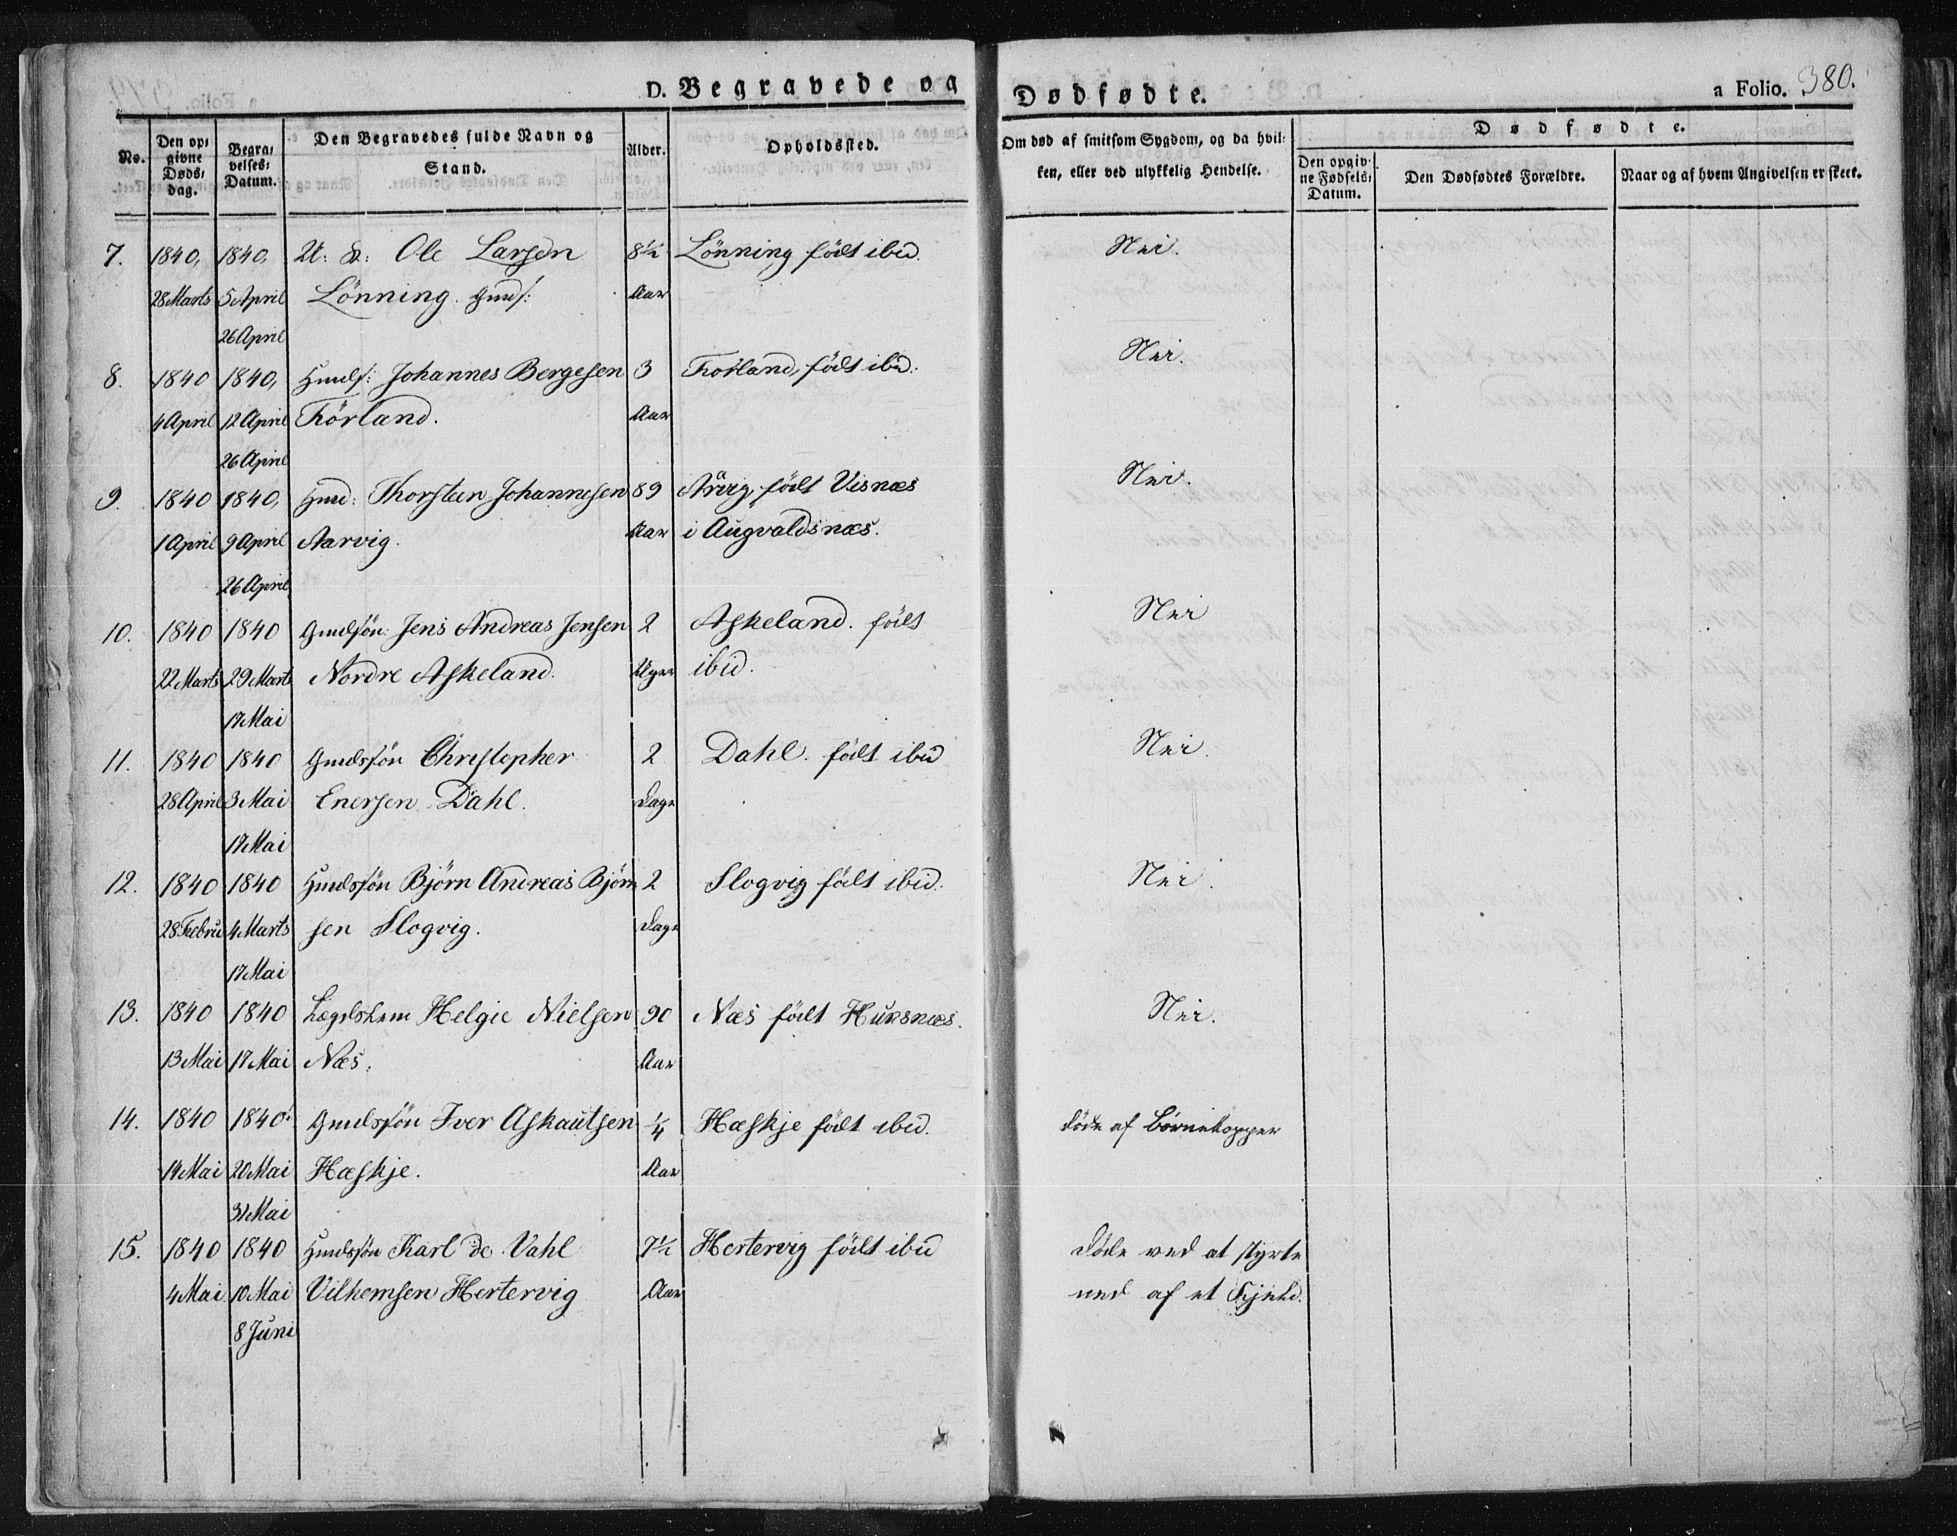 D. Begravede og Dødfødte. a Folio. 380.
No. | Den opgivne Dødsdag. | Begravelses-Datum. | Den Begravedes fulde Navn og Stand. | Alder. | Opholdssted. | Om død af smitsom Sygdom, og da hvilken, eller ved ulykkelig Hendelse. | Dødfødte. | Den opgivne Fødsels-Datum. | Den Dødfødtes Forældre. | Naar og af hvem Angivelsen er skeet.
7. 1840, 1840, U: S: Ole Larsen 8½ Lönning födt ibid. Nei.
28 Marts 5 April Lönning. Gmds: Aar
26 April
8. 1840 1840, Hmds: Johannes Bergesen 3 Förland, födt ibid. Nei.
4 April 12 April Förland. Aar
26 April
9. 1840 1840, Hmd: Thorsteen Johannesen 89 Årvig, födt Visnæs Nei.
1 April 9 April Aarvig. Aar i Augvaldsnæs.
26 April
10. 1840 1840 Gmdsön Jens Andreas Jensen 2 Askeland. födt Nei
22 Marts 29 Marts Nordre Askeland. Uger ibid.
17 Mai
11. 1840 1840 Gmdssön Christopher 2 Dahl. födt ibid Nei.
28 April 3 Mai Enersen Dahl. Dage
17 Mai
12. 1840 1840 Hmdssön Björn Andreas Björn 2 Slogvig födt ibid. Nei.
28 Febru 4 Marts sen Slogvig. Dage
17 Mai
13. 1840 1840 Lægdslem Helgie Nielsen 90 Næs födt Husnæs. Nei.
13 Mai 17 Mai Næs. Aar
14. 1840 1840. Gmdssön Iver Askautsen ¼ Hæskje födt ibid. döde af Börnekopper
14 Mai 20 Mai Hæskje. Aar
31 Mai
15. 1840 1840 Hmdssön Karl de Vahl 7½ Hertervig födt ibid döde ved at styrte
4 Mai 10 Mai Vilhemsen Hertervig Aar ned af et Fjeld.
8 Juni